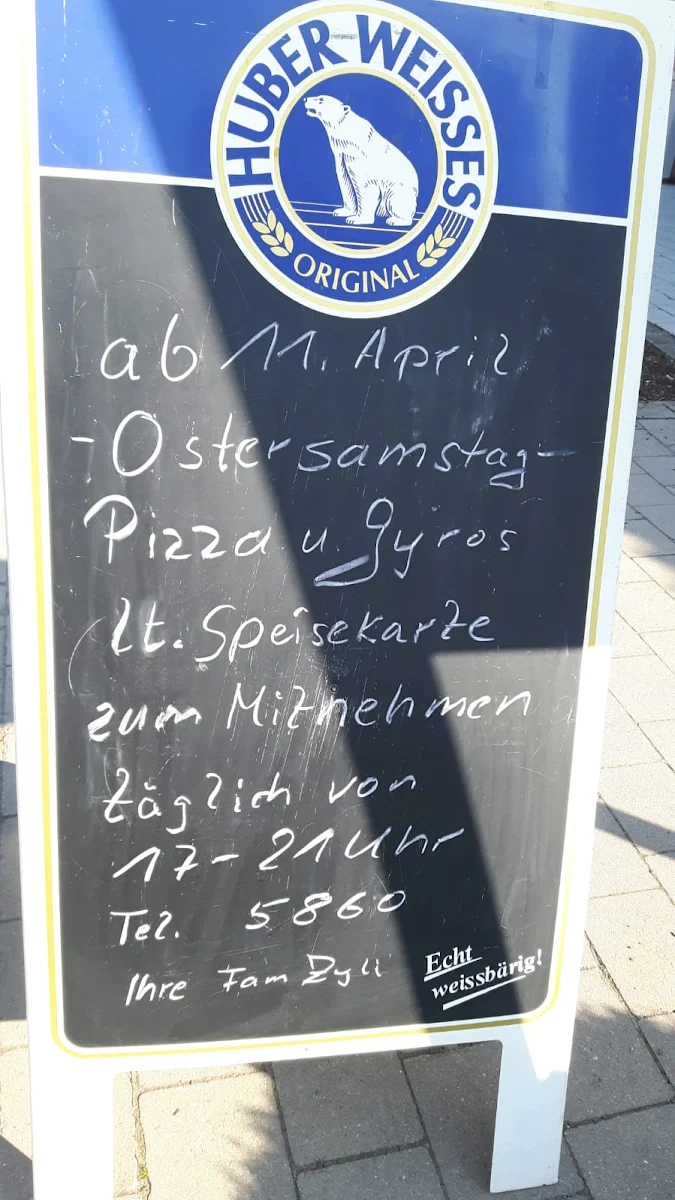 HUBER WEISSES
ORIGINAL
ab 11. April
-Ostersamstag-
Pizza u. Gyros
lt. Speisekarte
zum Mitnehmen
täglich von
17-21 Uhr
Tel. 5860
Ihre Fam Zyli
Echt
weissbärig!